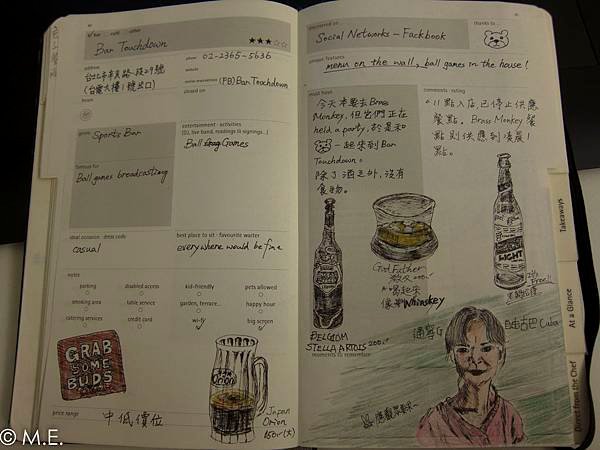 bar
café
other
Bar Touchdown
★★★☆☆
address
台北市羅斯福路一段29號
(台電大樓1號出口)
phone 02-2365-5636
website
(FB) Bar Touchdown
closed on
genre
Sports Bar
entertainment · activities
(DJ, live band, readings & signings...)
Ball Games
famous for
Ball games broadcasting
ideal occasion · dress code
casual
best place to sit · favourite waiter
everywhere would be fine
notes
parking
disabled access
kid-friendly
pets allowed
smoking area
table service
garden, terrace...
happy hour
catering services
credit card
wi-fi
big screen
GRAB
SOME
BUDS
Orion
Japan
Orion
150r(大)
price range
中低價位
discovered on ...
Social Networks - Fackbook
thanks to ...
unique features
menu on the wall, ball games in the house!
must have
今天本要去Brass
Monkey, 但它們正在
held a party, 於是和
一起來到Bar
Touchdown。
除了酒之外, 沒有
食物。
comments · rating
11點入店已停止供應
餐點。Brass Monkey餐
點則供應到凌晨1
點。
God Father
教父200.-
喝起來
像Whiskey
BELGIOM
STELLA ARTOIS 200.-
LIGHT
moments to remember
通寧G
自由古巴Cuba
Takeaways
At a Glance
Dishes from the Chef
© M.E.